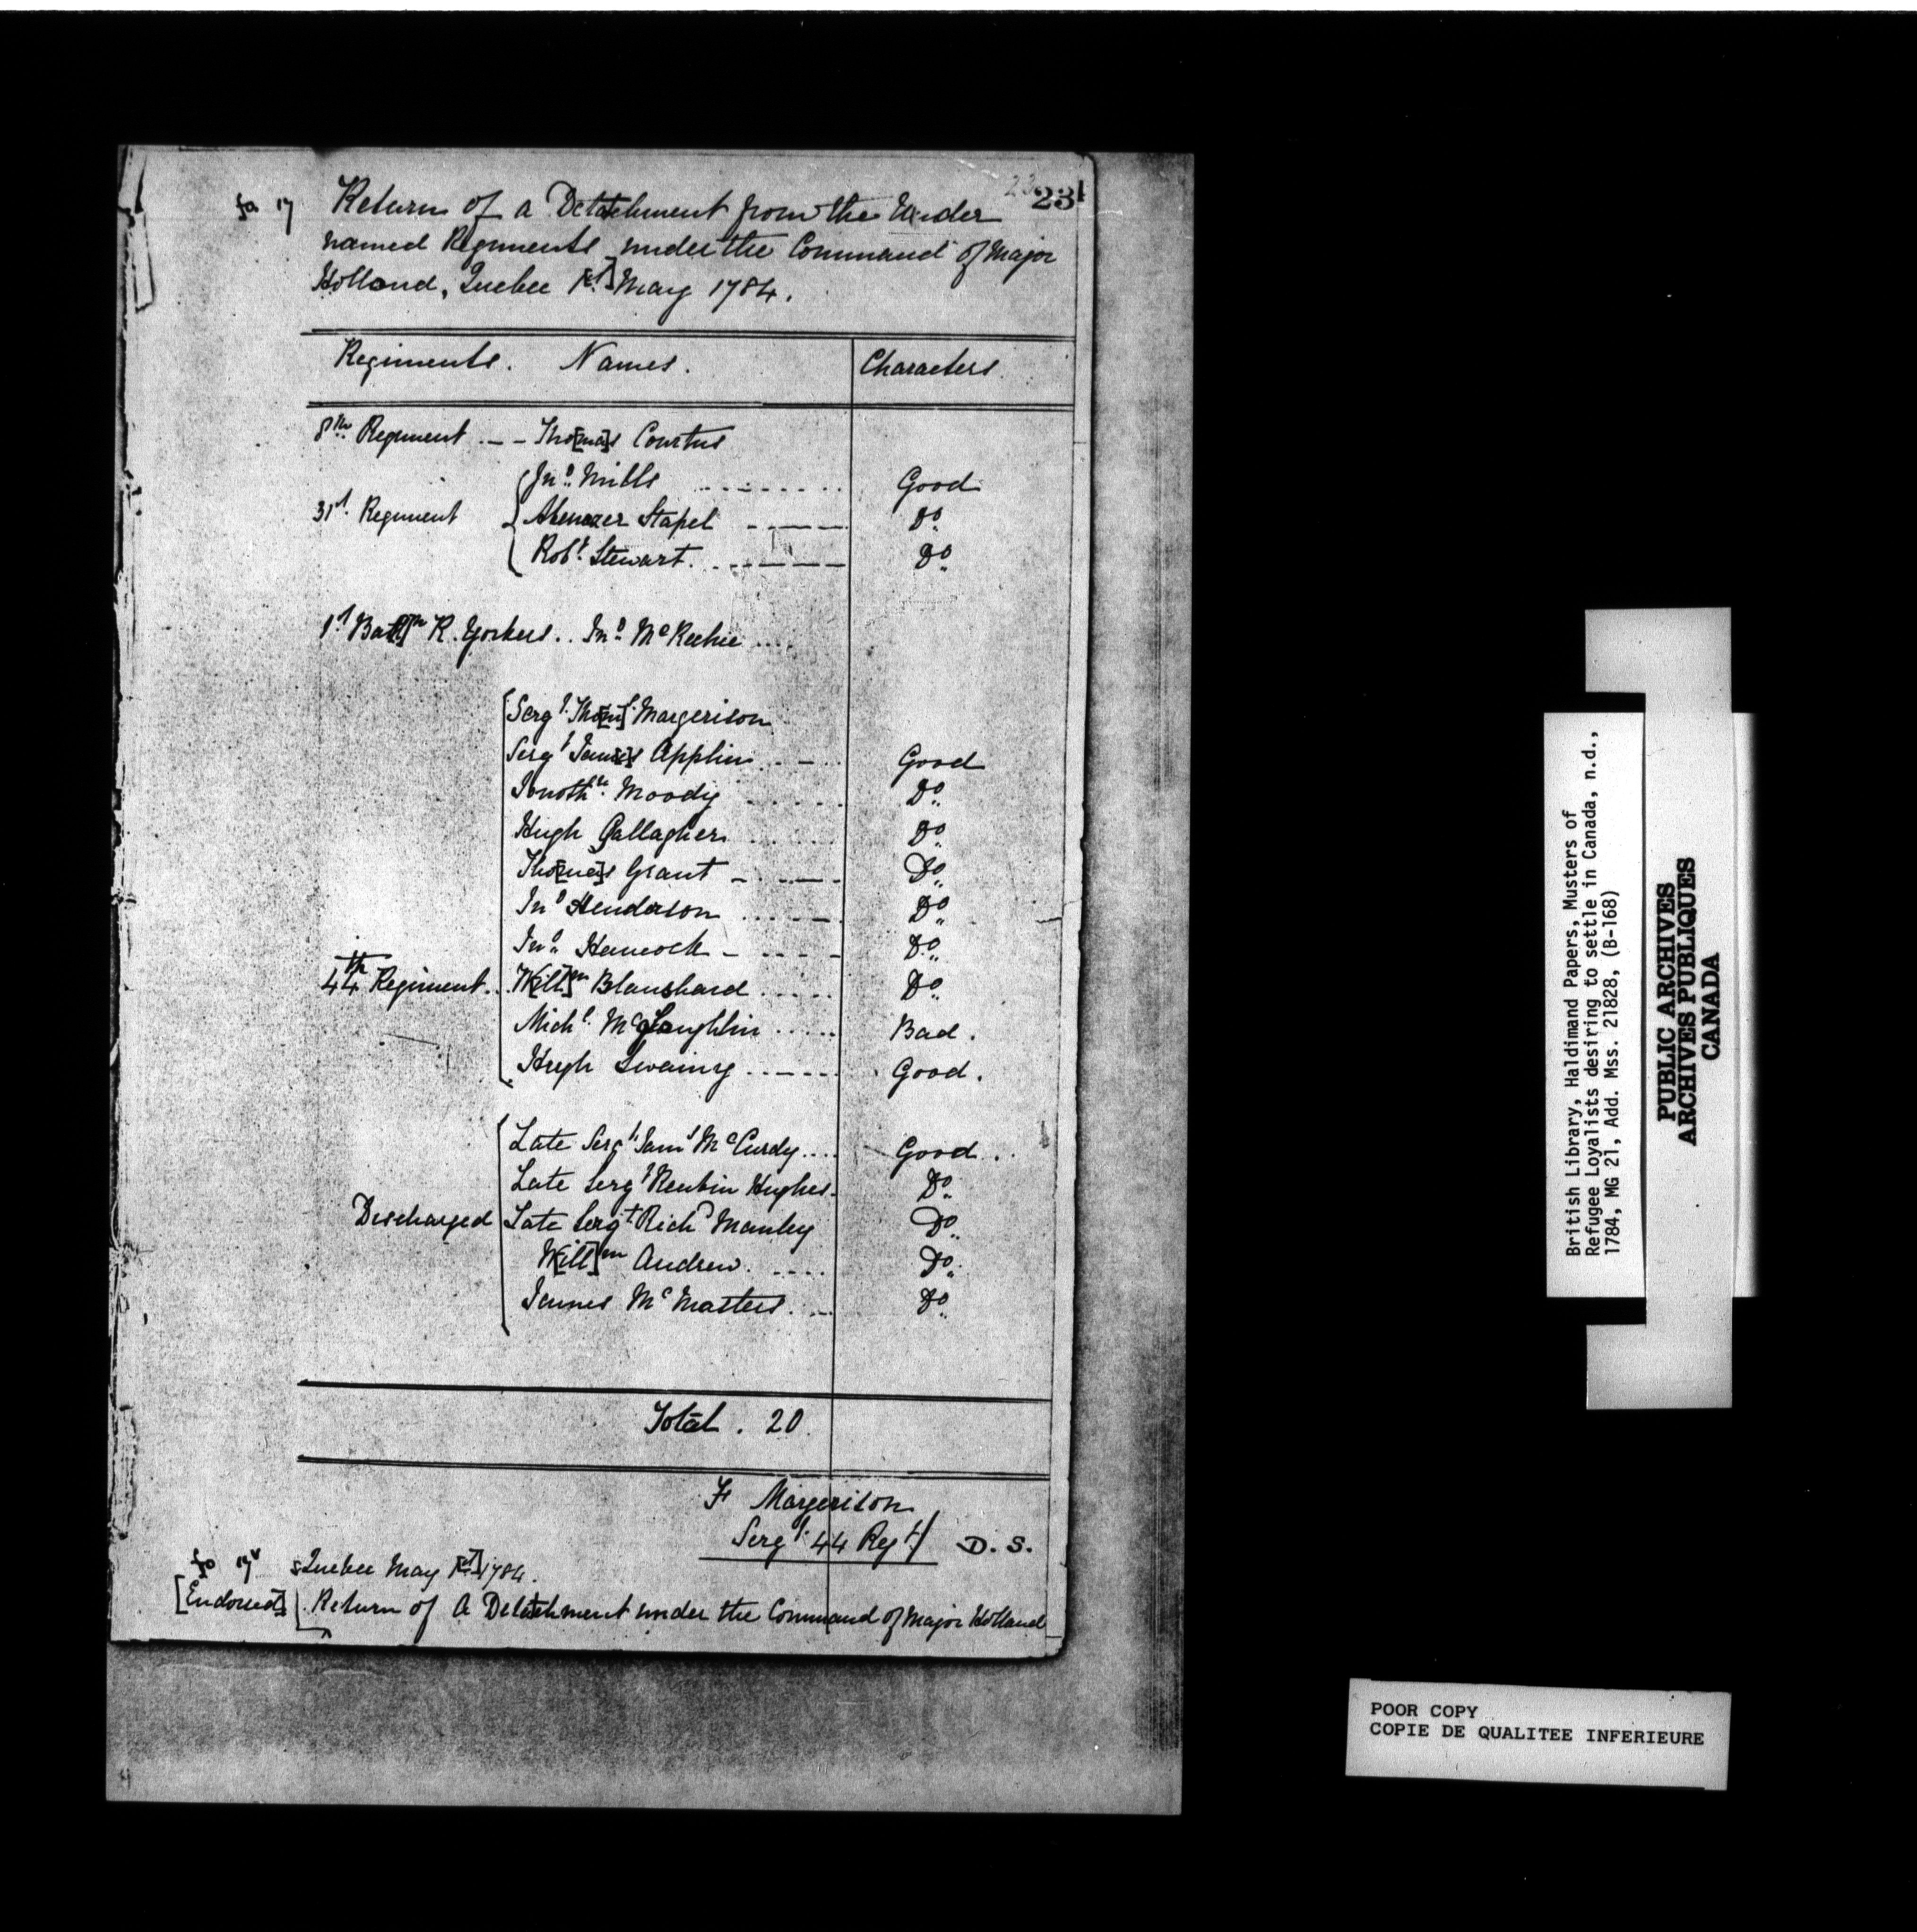 fo 17
23
23
Return of a Detatchment from the Under
named Regiments under the Command of Major
Holland, Quebec 1[st] May 1784.
Regiments. Names. Characters.
8th Regiment . - - Tho[ma]s Courtus
Jno. Mills ........ Good
31st. Regiment Abenezer Stapel ------ Do
Robt. Stewart. ------- Do
1st Bat[t]n R. Yorkers .. Jno. McKechie ....
Sergt. Tho[m]s. Margerison
Sergt James Applin . - . Good
Jonothn. Moody ...... Do
Hugh Gallagher ...... Do
Tho[ma]s Grant - . --- . Do
Jno Henderson ....... Do
Jno. Hancock - - - - - Do
44th Regiment .. W[ill]m Blanshard ..... Do
Michl. McGloughlin ..... Bad.
Hugh Swainy ------ Good.
Late Sergt. Saml McCurdy .... Good ..
Late Sergt Reubin Hughes. Do
Discharged Late Sergt Richd Manley Do
W[ill]m Andrew. .... Do
James McMasters. ... Do
Total . 20.
Margerison
Sergt. 44 Regt./ D. S.
fo 17v Quebec May 1[st] 1784.
[Endorsed] Return of A Detatchment under the Command of Major Holland
British Library, Haldimand Papers, Musters of
Refugee Loyalists desiring to settle in Canada, n.d.,
1784, MG 21, Add. Mss. 21828, (B-168)
PUBLIC ARCHIVES
ARCHIVES PUBLIQUES
CANADA
POOR COPY
COPIE DE QUALITEE INFERIEURE